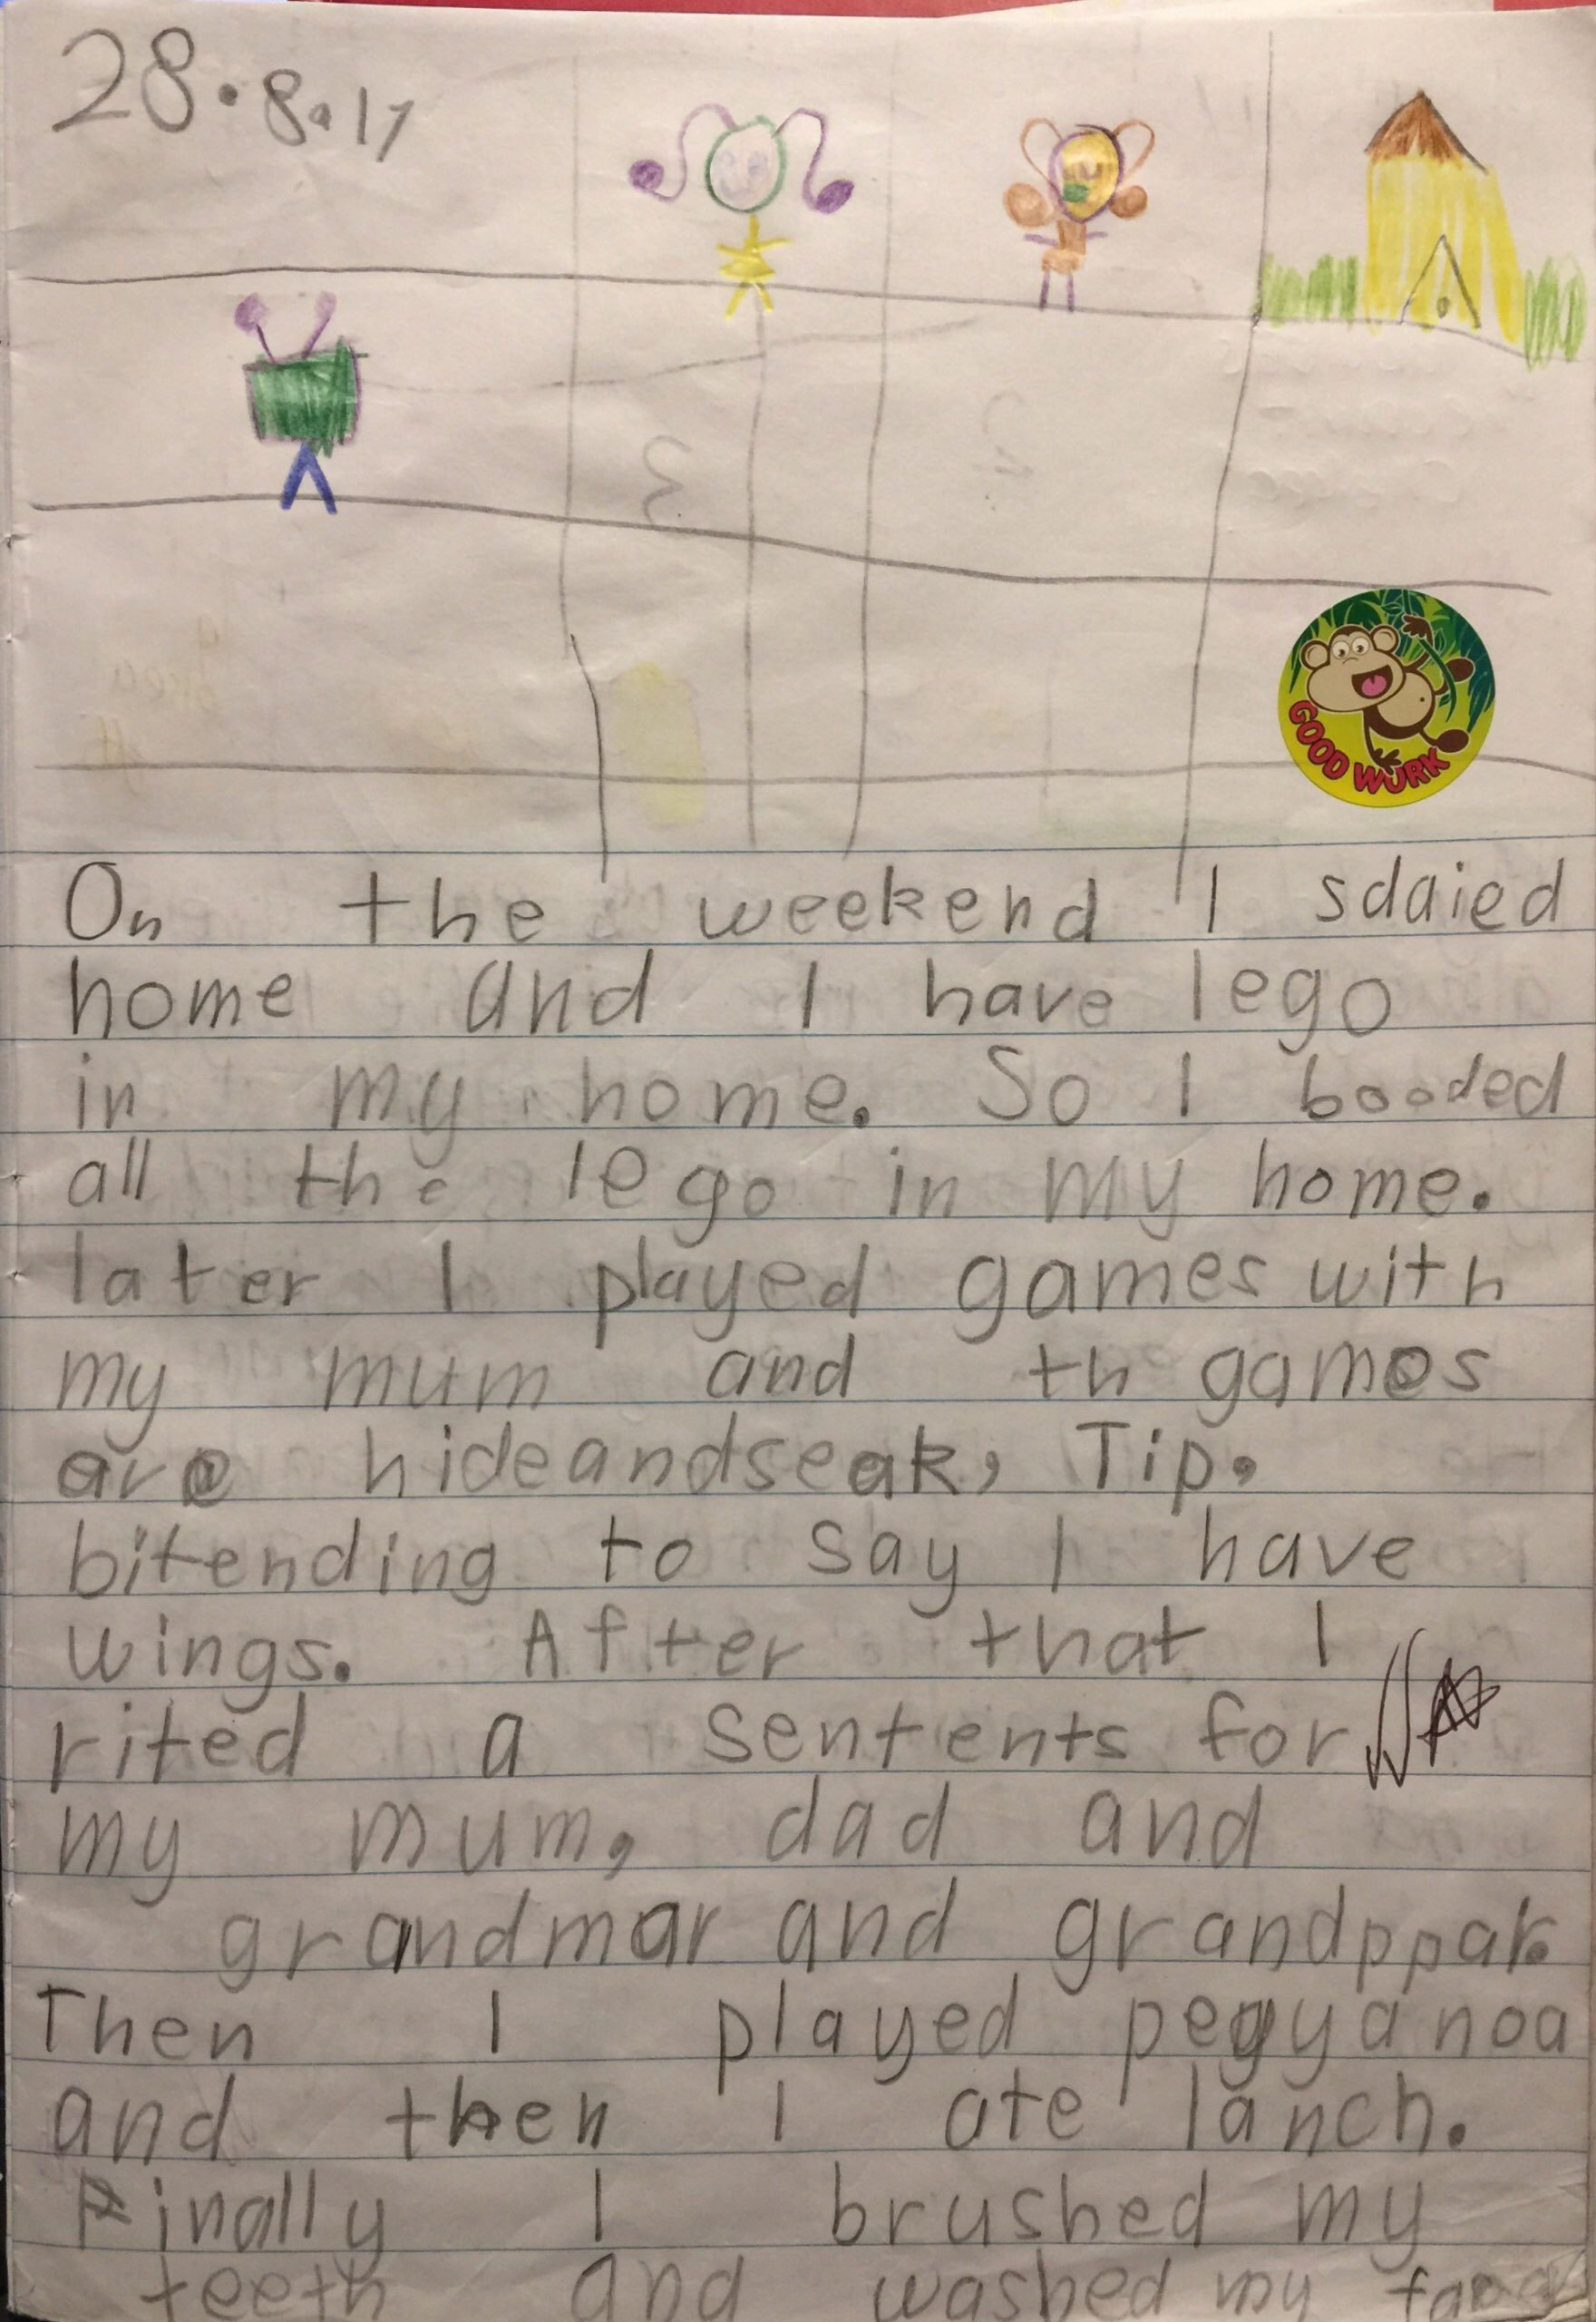 28.8.17
GOOD WORK
On the weekend I sdaied
home and I have lego
in my home. So I booded
all the lego in my home.
later I played games with
my mum and th games
are hideandseak, Tip.
bitending to say I have
wings. After that I
rited a sentents for
my mum, dad and
grandmar and grandppar.
Then I played pegyanoa
and then I ate lanch.
Finally I brushed my
teeth and washed my